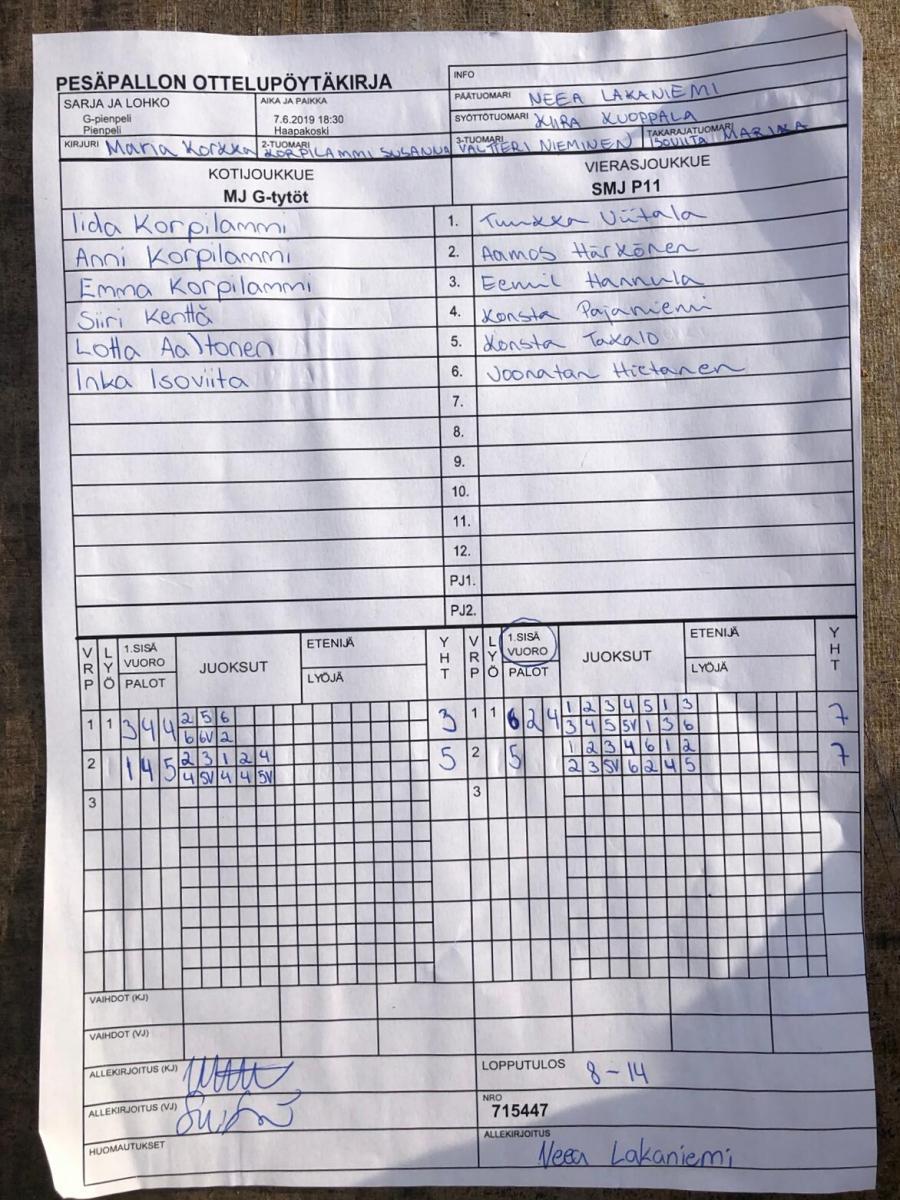 PESÄPALLON OTTELUPÖYTÄKIRJA
INFO
SARJA JA LOHKO
G-pienpeli
Pienpeli
AIKA JA PAIKKA
7.6.2019 18:30
Haapakoski
PÄÄTUOMARI NEEA LAKANIEMI
SYÖTTÖTUOMARI KIIRA KUOPPALA
KIRJURI Maria Korkka 2-TUOMARI KORPILAMMI SUSANNA 3-TUOMARI VALTTERI NIEMINEN TAKARAJATUOMARI ISOVIITA MARIKA
KOTIJOUKKUE VIERASJOUKKUE
MJ G-tytöt SMJ P11
Iida Korpilammi 1. Tuukka Viitala
Anni Korpilammi 2. Aamos Härkönen
Emma Korpilammi 3. Eemil Hannula
Siiri Kenttä 4. Konsta Pajaniemi
Lotta Aaltonen 5. Konsta Takalo
Inka Isoviita 6. Joonatan Hietanen
7.
8.
9.
10.
11.
12.
PJ1.
PJ2.
VRP LYÖ 1.SISÄ VUORO PALOT JUOKSUT ETENIJÄ LYÖJÄ YHT VRP LYÖ 1.SISÄ VUORO PALOT JUOKSUT ETENIJÄ LYÖJÄ YHT
1 1 3 4 4 2 5 6 3 1 1 6 2 4 1 2 3 4 5 1 3 7
6 6V 2 3 4 5 5V 1 3 6
2 1 4 5 2 3 1 2 4 5 2 5 1 2 3 4 6 1 2 7
4 5V 4 4 5V 2 3 5V 6 2 4 5
3 3
VAIHDOT (KJ)
VAIHDOT (VJ)
ALLEKIRJOITUS (KJ) LOPPUTULOS 8-14
ALLEKIRJOITUS (VJ) NRO
715447
HUOMAUTUKSET ALLEKIRJOITUS
Neea Lakaniemi